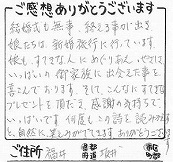 ご感想ありがとうございます
結婚式も無事、終える事が出来
娘たちは新婚旅行に行っています。
娘も、すてきな人にめぐりあい、やさしさ
いっぱいの御家族に出会えた事を
喜んでおります。そして、こんなにすてきな
プレゼントを頂いて、感謝の気持ちで
いっぱいです。何度もこの詩を読みかえ
し、自然に涙ものがでてます。ありがとうござ
ご住所 福井 都道府県 坂井 市